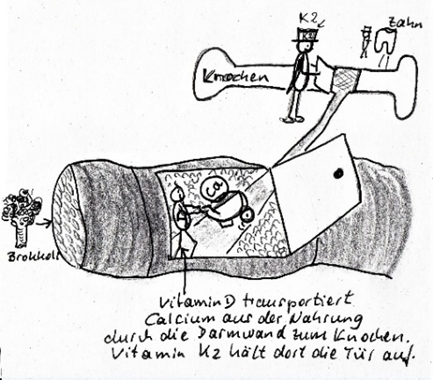 K2
Zahn
Knochen
Ca
Brokkoli
Vitamin D transportiert
Calcium aus der Nahrung
durch die Darmwand zum Knochen.
Vitamin K2 hält dort die Tür auf.